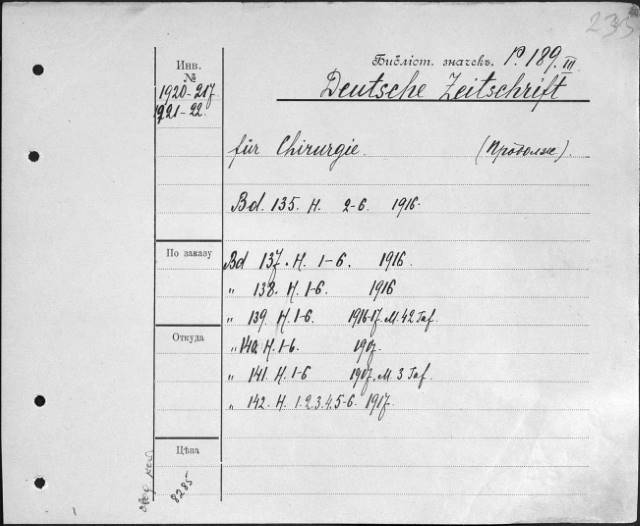 235
Инв.
№
1920-217
1921-22
Библіот. значекъ. P. 189. III
Deutsche Zeitschrift
für Chirurgie. (Продолж).
Bd. 135. H. 2-6. 1916.
По заказу
Bd 137. H. 1-6. 1916.
„ 138. H. 1-6. 1916
„ 139. H. 1-6. 1916-17. M. 42 Taf.
Откуда
„ 140 H. 1-6. 1917.
„ 141. H. 1-6 1917. M 3 Taf.
„ 142. H. 1.2.3.4.5-6. 1917.
Цѣна
8285